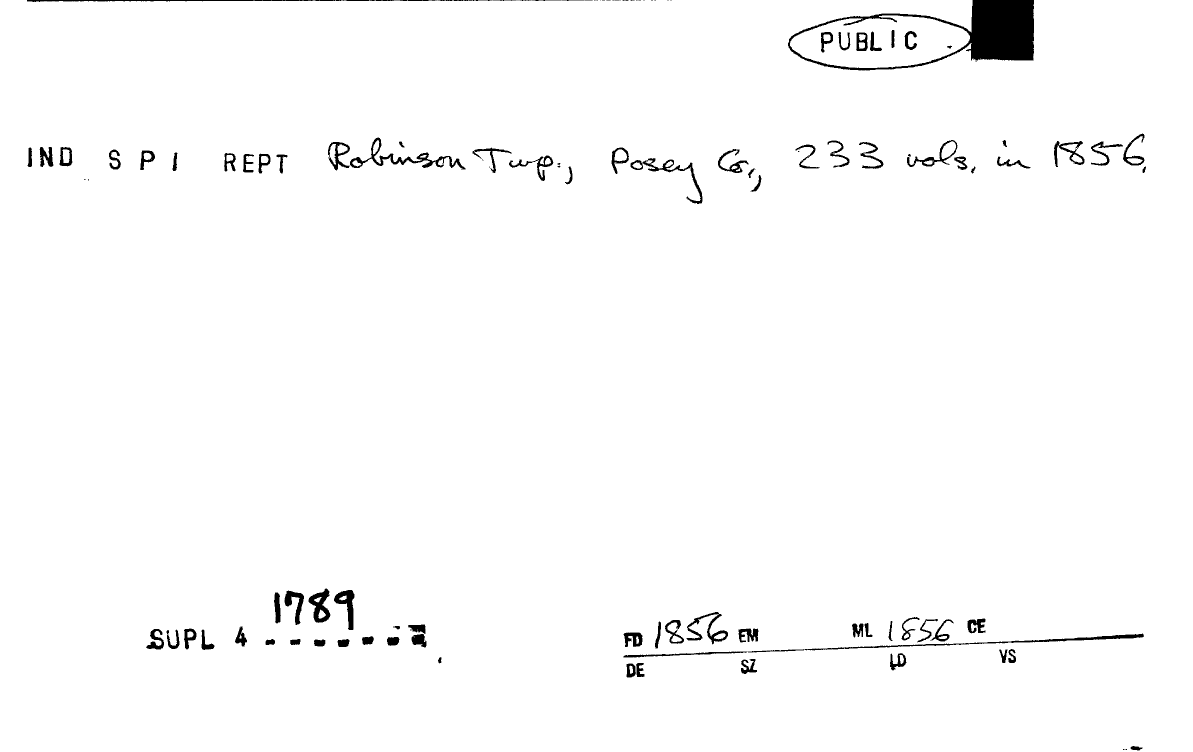 PUBLIC
IND S P I REPT Robinson Twp., Posey Co., 233 vols. in 1856.
1789
SUPL 4
FD 1856 EM ML 1856 CE
DE SZ LD VS